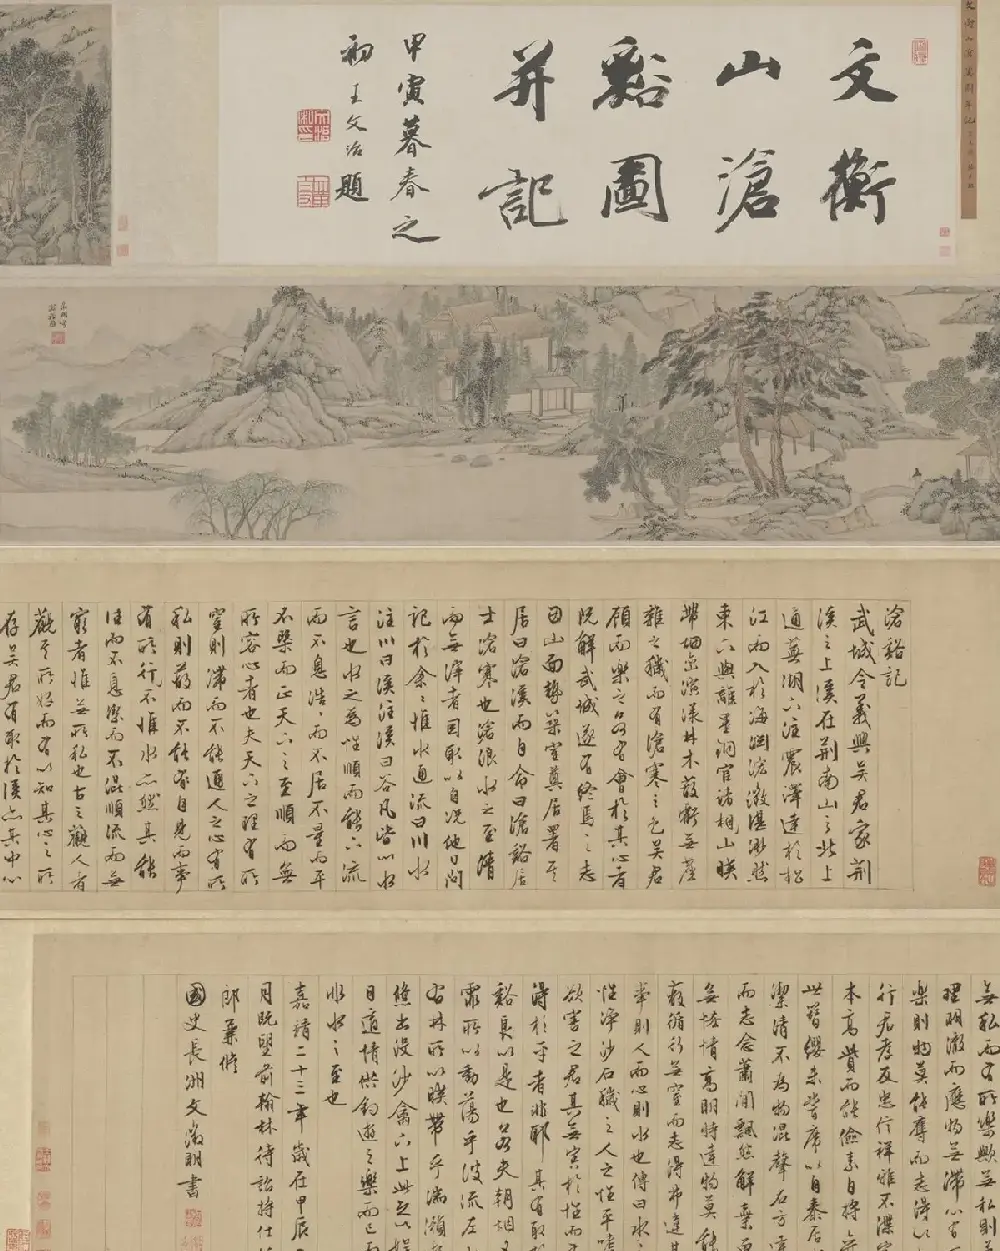 文衡
山滄
谿圖
并記
甲寅暮春之
初王文治題
滄谿記
武城令義興吳君家荊
溪之上溪在荊南山之北上
通蕪湖下注震澤達於松
江而入於海淵渟澂湛渺然
東下與離墨銅官諸山暎
帶烟雲演漾林木蔽虧無塵
雜之穢而有滄寒之色吳君
顧而樂之若有會於其心者
既解武城遂有終焉之志
因山面勢築室奠居署其
居曰滄溪而自命曰滄谿居
士滄寒也滄浪水之至清
而無滓者固取以自況他日問
記於余余惟水通流曰川水
注川曰溪注溪曰谷凡皆以水
言也水之為性順而能下流
而不息浩浩而不居不量而平
不槩而正天下之至順而無
所容心者也夫天下之理有所
窒則滯而不能通人之心有所
私則蔽而不能有自見而事
有所行不惟水亦然其能
往而不息潔而不混順流而無
窮者惟無所私也古之觀人者
觀其所好而有以知其心之所
存吳君有取於溪亦其中心
無私而有所樂歟無私則
理明澈而應物無滯心有
樂則物莫能奪而志得以
行君孝友忠信祥雅不
本高貲而能儉素自將
世簪纓未嘗席以自泰居
潔清不為物混聲名方
而志念蕭閒飄然解棄而
無吝情高明特達物莫能
蔽循行無窒而志得布達其
率則人而心則水也傳曰水之
性淨沙石穢之人之性平嗜
欲害之君其無害於性而
得於平者非耶其有取
谿良以是也若夫朝烟夕
霏所以動蕩乎波流左
右林所以暎帶乎
鯈出沒沙禽下上此足以娛
日適情供釣遊之樂而已而
水水之至也
嘉靖二十三年歲在甲辰
月既望前翰林待詔將仕佐
郎兼脩
國史長洲文徵明書